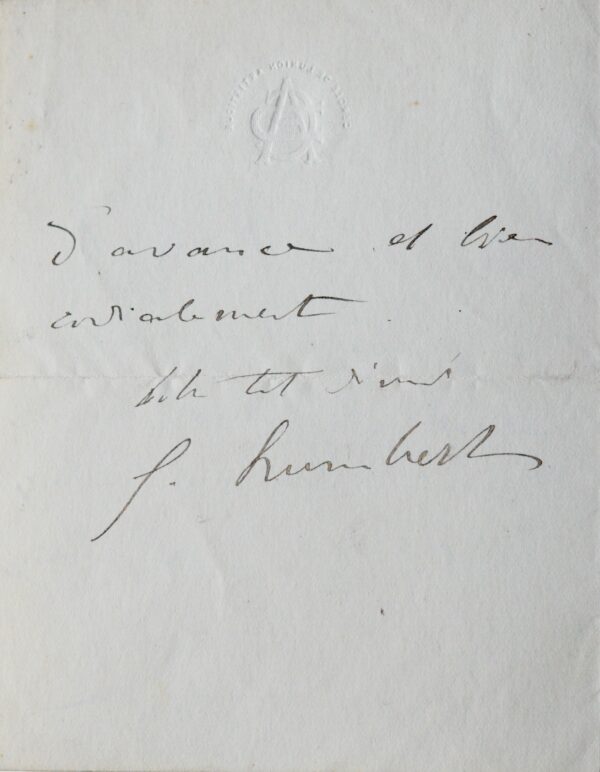 d'avance et bien
cordialement
tout dévoué
G. Humbert